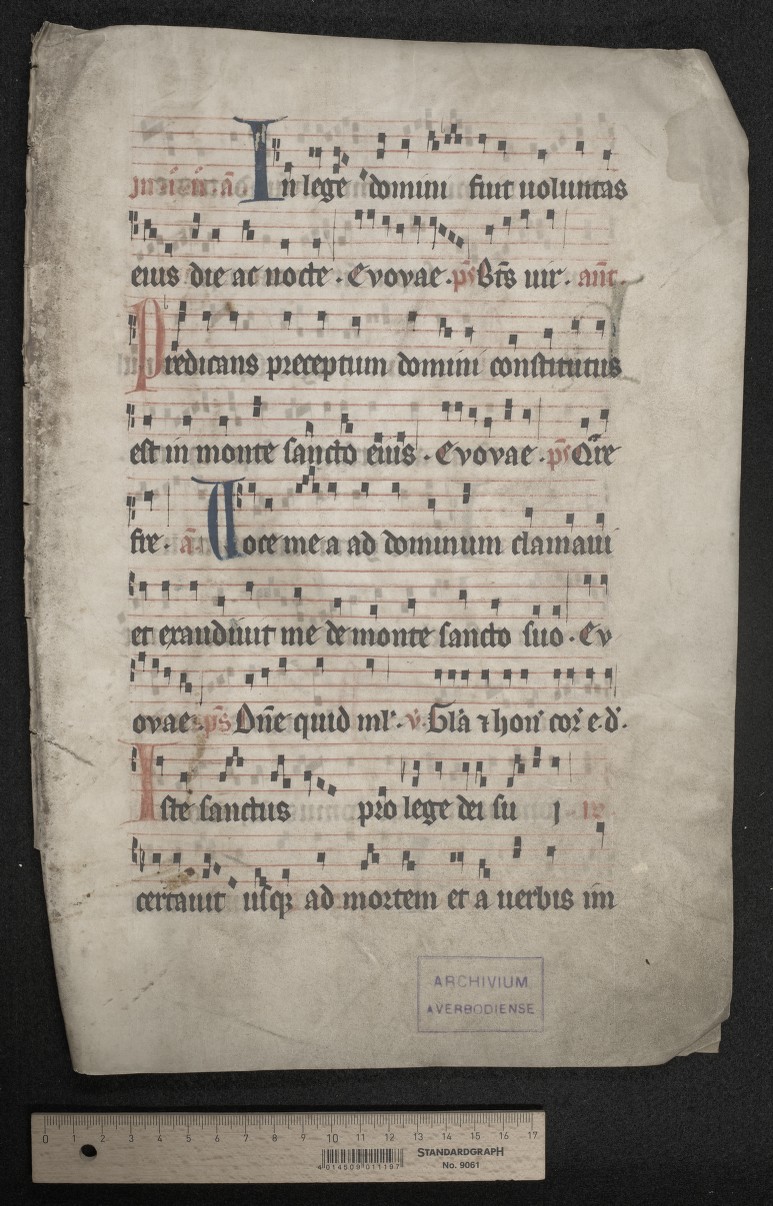 In lege domini fuit uoluntas
eius die ac nocte · Evovae · ps Bts uir · ant.
Predicans preceptum domini constitutus
est in monte sancto eius · Evovae · ps Qre
fre · a Uoce mea ad dominum clamaui
et exaudiuit me de monte sancto suo · Ev
ovae · ps Dne quid ml'. v. Gla ⁊ hon' cor' e. d'.
Iste sanctus pro lege dei su j · re
certauit usq; ad mortem et a uerbis im
ARCHIVIUM
AVERBODIENSE
0 1 2 3 4 5 6 7 8 9 10 11 12 13 14 15 16 17
4 014509 011197
STANDARDGRAPH
No. 9061